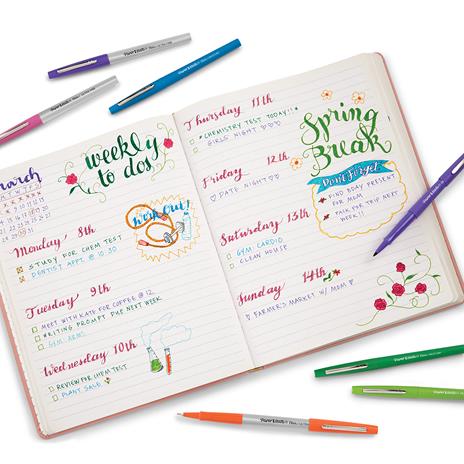 march
weekly
to dos
Monday 8th
STUDY FOR CHEM TEST
DENTIST APPT. @ 10:30
work out!
Tuesday 9th
MEET WITH KATE FOR COFFEE @ 12
WRITING PROMPT DUE NEXT WEEK
GYM: ARMS
Wednesday 10th
REVIEW FOR CHEM TEST
PLANT SALE
Thursday 11th
*CHEMISTRY TEST TODAY!!*
GIRLS NIGHT ♡♡♡
Friday 12th
♡ DATE NIGHT ♡♡
Saturday 13th
GYM: CARDIO
CLEAN HOUSE
Sunday 14th
♡ FARMER'S MARKET W/ MOM ♡
Spring
Break
Don't Forget
FIND BDAY PRESENT
FOR MOM
PACK FOR TRIP NEXT
WEEK!!
PaperMate
PaperMate
PaperMate
PaperMate
PaperMate
PaperMate
PaperMate